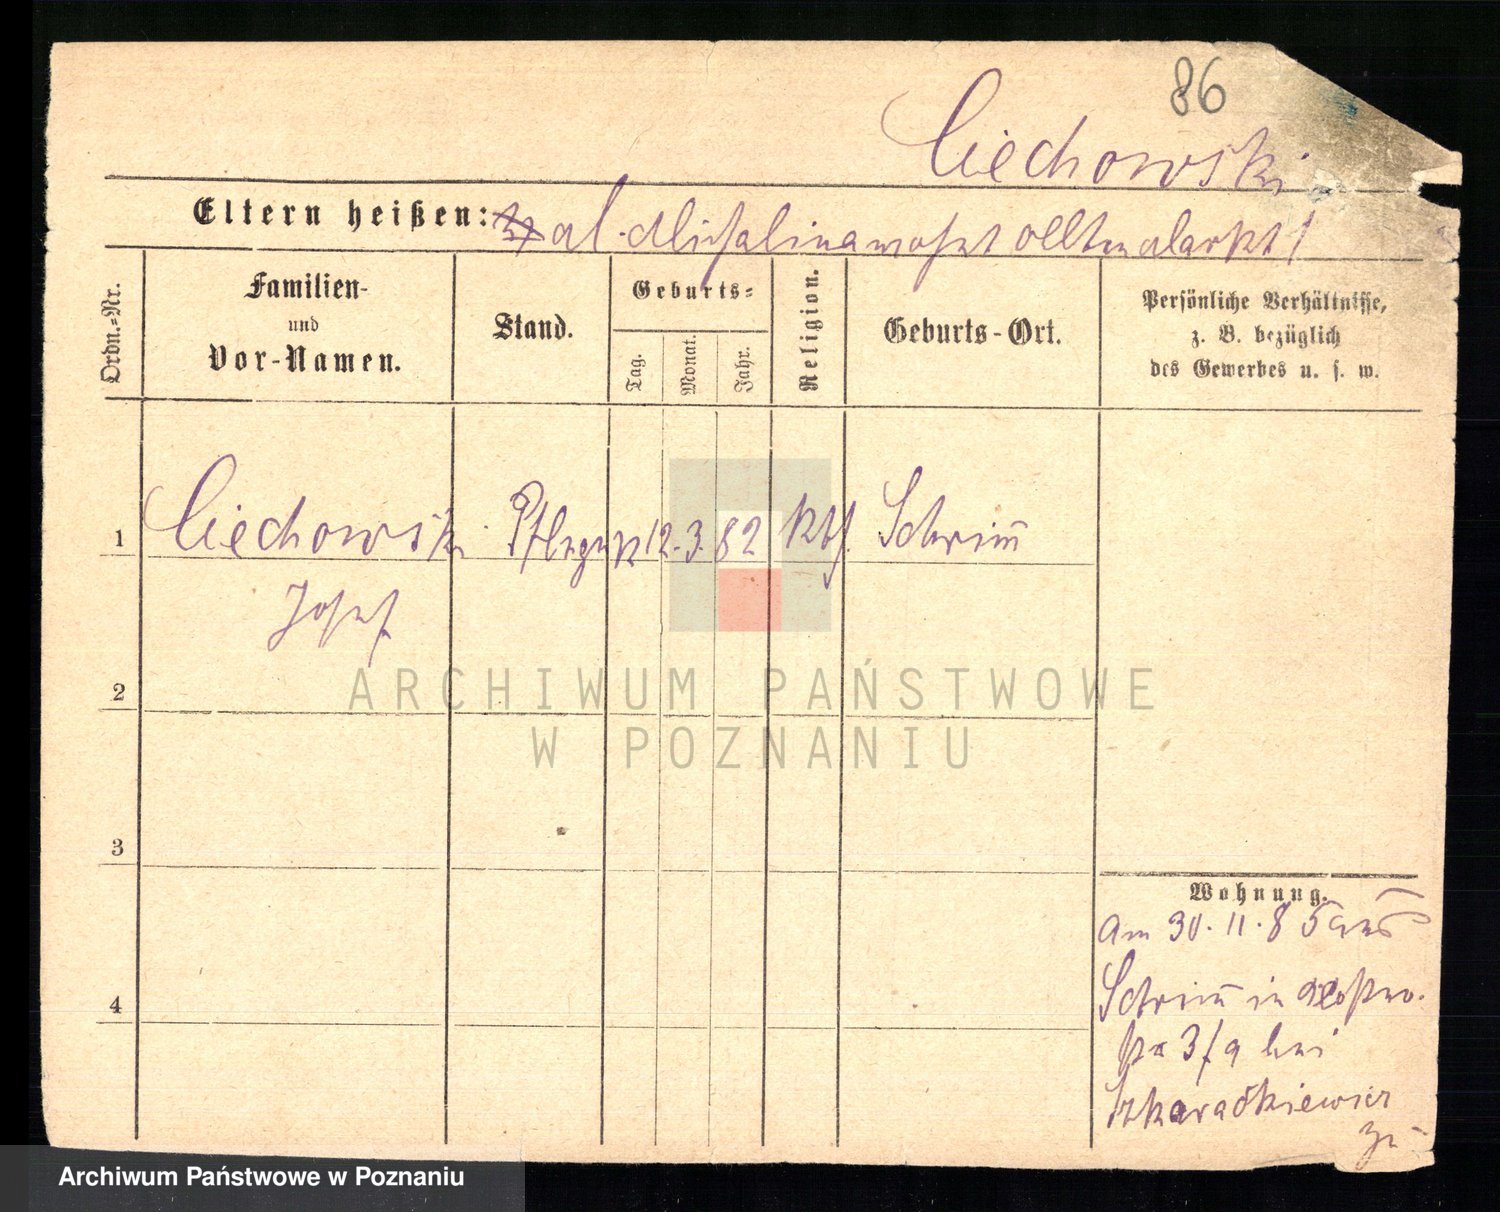 86
Ciechowski
Eltern heißen: al. Michalina wohnt Alten Markt 1
Ordn.-Nr.
Familien-
und
Vor-Namen.
Stand.
Geburts-
Tag.
Monat.
Jahr.
Religion.
Geburts-Ort.
Persönliche Verhältnisse,
z. B. bezüglich
des Gewerbes u. s. w.
1 Ciechowski 12. 3. 82 kth. Schrimm
Josef
2
3
4
Wohnung.
am 30. 11. 85 aus
Schrimm in
3/9 bei
Szkaradkiewicz
zu
ARCHIWUM PAŃSTWOWE
W POZNANIU
Archiwum Państwowe w Poznaniu